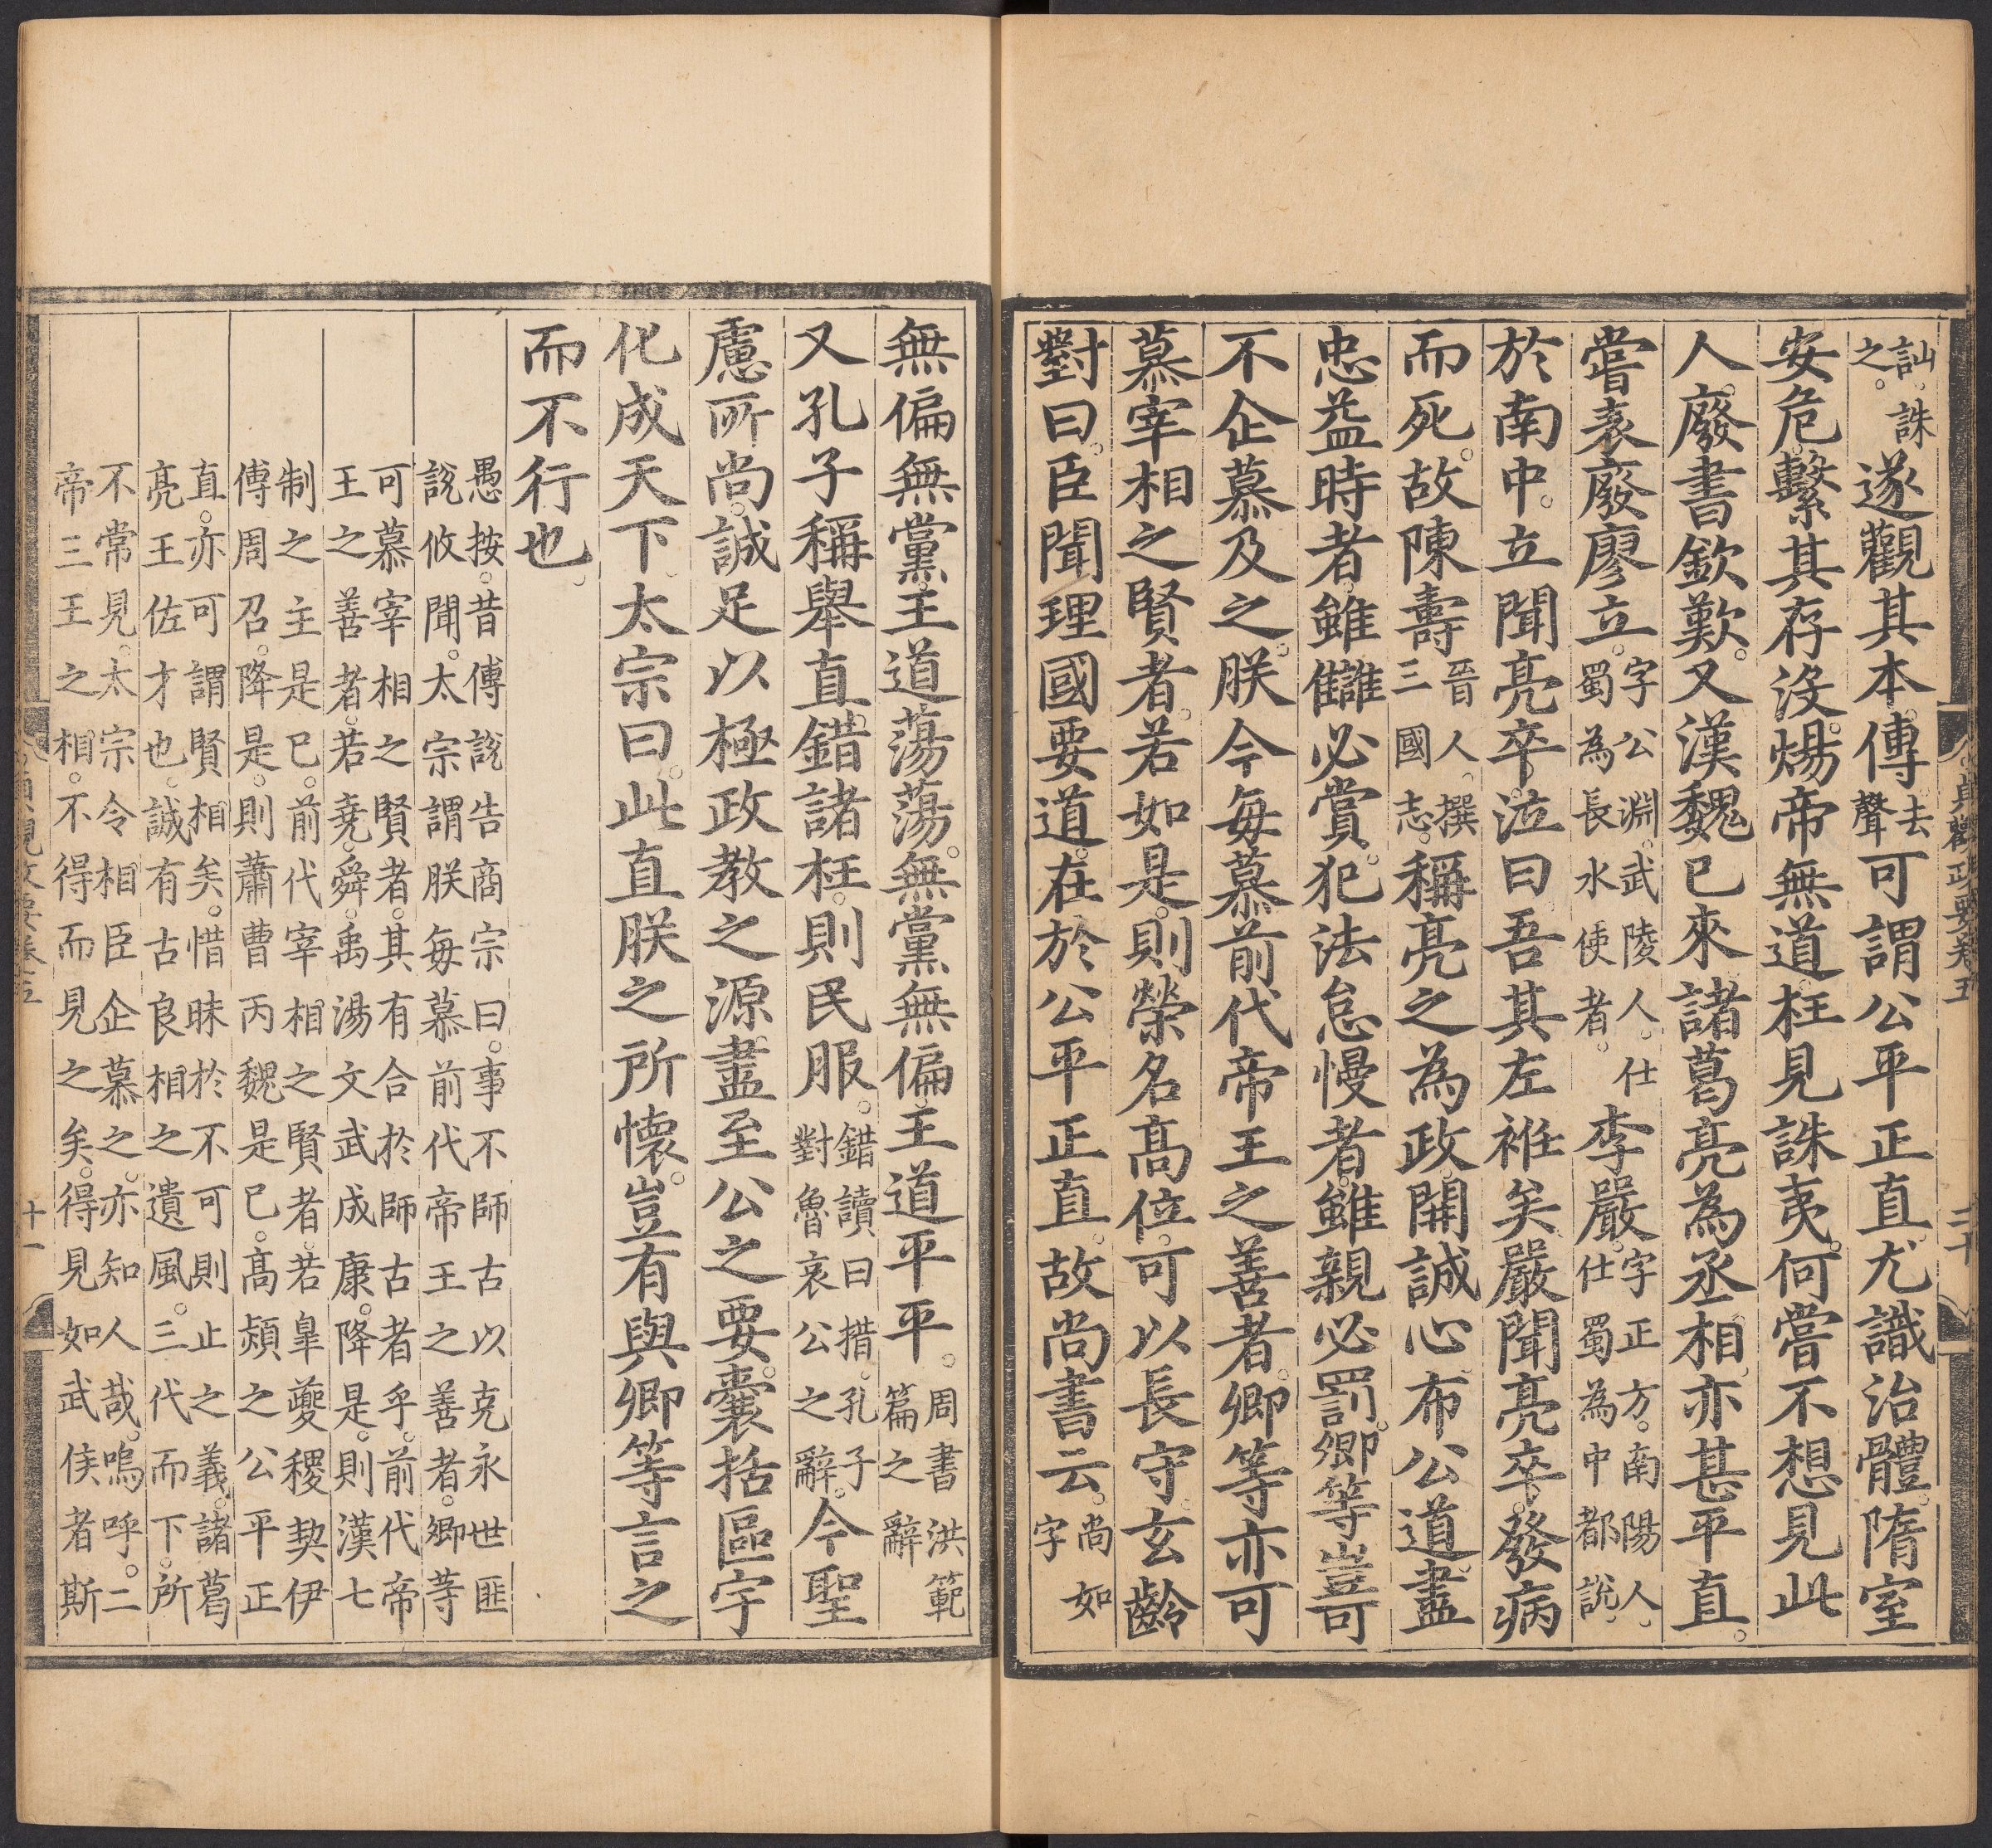 訕誅之。遂觀其本傳去聲可謂公平正直。尤識治體。隋室
安危。繫其存沒。煬帝無道。枉見誅夷。何嘗不想見此
人。廢書欽歎。又漢魏已來。諸葛亮為丞相。亦甚平直。
嘗表廢廖立。字公淵。武陵人。仕蜀為長水使者。李嚴。字正方。南陽人。仕蜀為中都說。
於南中。立聞亮卒。泣曰吾其左衽矣。嚴聞亮卒。發病
而死。故陳壽晉人。撰三國志。稱亮之為政。開誠心。布公道。盡
忠益時者。雖讎必賞。犯法怠慢者。雖親必罰。卿等豈可
不企慕及之。朕今每慕前代帝王之善者。卿等亦可
慕宰相之賢者。若如是。則榮名高位。可以長守。玄齡
對曰。臣聞理國要道。在於公平正直。故尚書云。尚如字
無偏無黨。王道蕩蕩。無黨無偏。王道平平。周書洪範篇之辭
又孔子稱舉直錯諸枉。則民服。錯讀曰措。孔子對魯哀公之辭。今聖
慮所尚。誠足以極政教之源。盡至公之要。囊括區宇
化成天下。太宗曰。此直朕之所懷。豈有與卿等言之
而不行也。
愚按。昔傅說告商宗曰。事不師古以克永世匪
說攸聞。太宗謂朕每慕前代帝王之善者。卿等
可慕宰相之賢者。其有合於師古者乎。前代帝
王之善者。若堯。舜。禹。湯文武成康。降是。則漢七
制之主是已。前代宰相之賢者。若皐夔稷契伊
傅周召。降是。則蕭曹丙魏是已。高熲之公平正
直。亦可謂賢相矣。惜昧於不可則止之義。諸葛
亮王佐才也。誠有古良相之遺風。三代而下。所
不常見。太宗令相臣企慕之。亦知人哉。嗚呼。二
帝三王之相。不得而見之矣。得見如武侯者斯
貞觀政要卷五
二十
貞觀政要卷五
十一